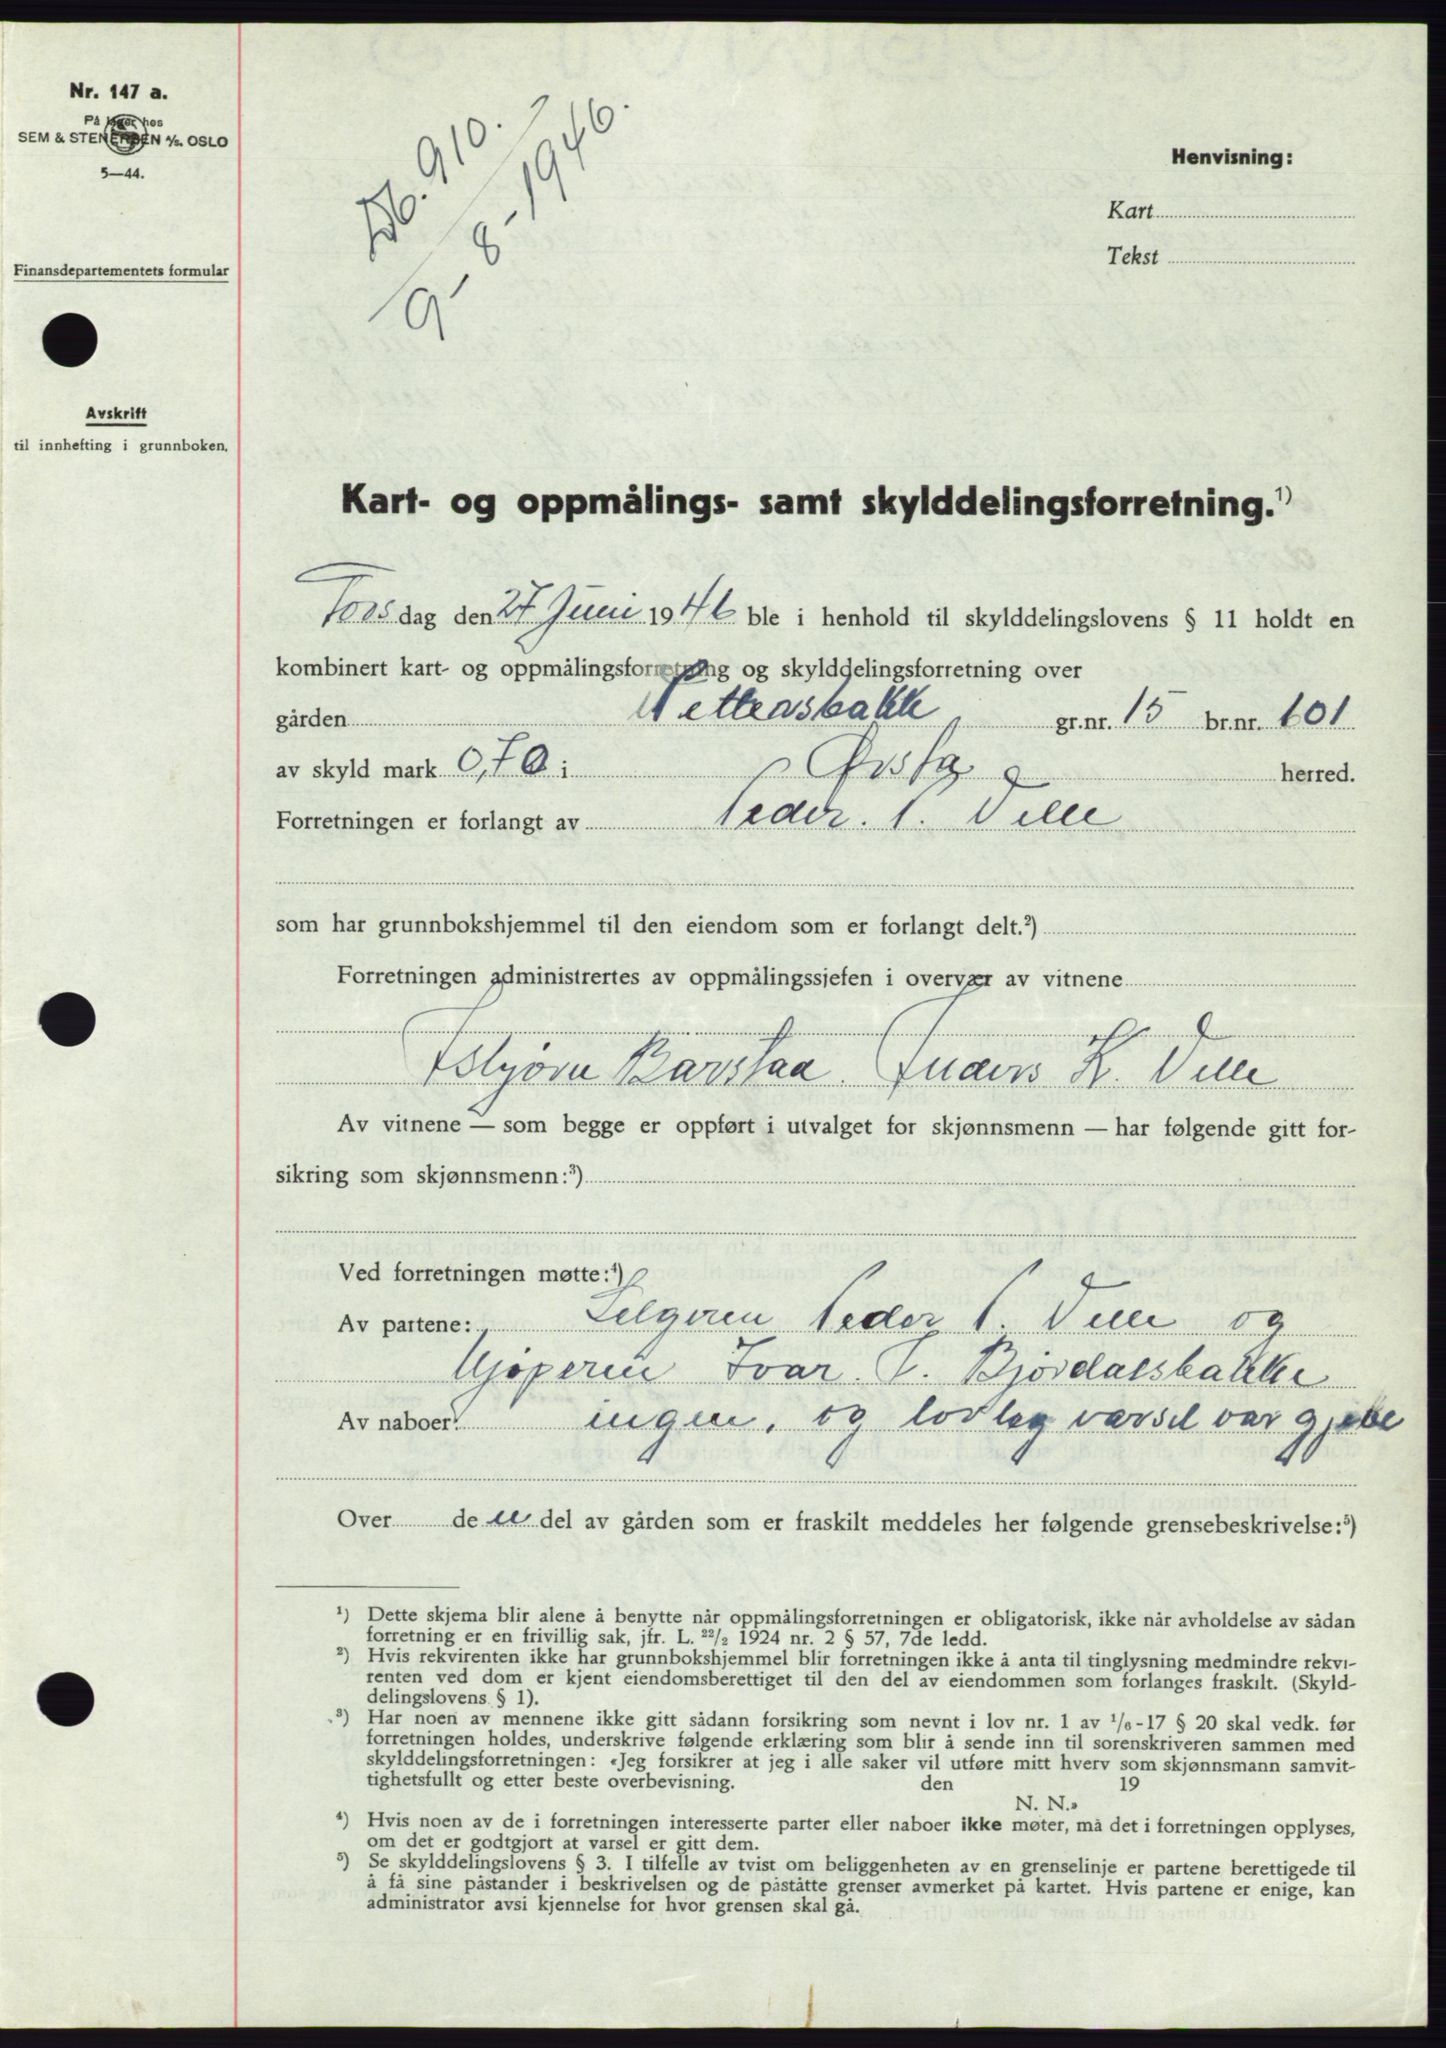 Nr. 147 a.
På lager hos
SEM & STENERSEN A/S. OSLO
5—44.
Finansdepartementets formular
Avskrift
til innhefting i grunnboken.
Db. 910.
9-8-1946.
Henvisning:
Kart
Tekst
Kart- og oppmålings- samt skylddelingsforretning.¹)
Torsdag den 27 Juni 1946 ble i henhold til skylddelingslovens § 11 holdt en
kombinert kart- og oppmålingsforretning og skylddelingsforretning over
gården Pettersbakk gr.nr. 15 br.nr. 101
av skyld mark 0,70 i Ørsta herred.
Forretningen er forlangt av Peder. P. Velle
som har grunnbokshjemmel til den eiendom som er forlangt delt.²)
Forretningen administrertes av oppmålingssjefen i overvær av vitnene
Asbjørn Barstad. Anders K. Velle
Av vitnene — som begge er oppført i utvalget for skjønnsmenn — har følgende gitt for-
sikring som skjønnsmenn:³)
Ved forretningen møtte:⁴)
Av partene: Selgeren Peder P. Velle og
kjøperen Ivar. T. Bjørdalsbakke
Av naboer: ingen, og lovleg varsel var gjeve
Over de n del av gården som er fraskilt meddeles her følgende grensebeskrivelse:⁵)
¹) Dette skjema blir alene å benytte når oppmålingsforretningen er obligatorisk, ikke når avholdelse av sådan
forretning er en frivillig sak, jfr. L. ²²/₂ 1924 nr. 2 § 57, 7de ledd.
²) Hvis rekvirenten ikke har grunnbokshjemmel blir forretningen ikke å anta til tinglysning medmindre rekvi-
renten ved dom er kjent eiendomsberettiget til den del av eiendommen som forlanges fraskilt. (Skyld-
delingslovens § 1).
³) Har noen av mennene ikke gitt sådann forsikring som nevnt i lov nr. 1 av ¹/₆-17 § 20 skal vedk. før
forretningen holdes, underskrive følgende erklæring som blir å sende inn til sorenskriveren sammen med
skylddelingsforretningen: «Jeg forsikrer at jeg i alle saker vil utføre mitt hverv som skjønnsmann samvit-
tighetsfullt og etter beste overbevisning. den 19
N. N.»
⁴) Hvis noen av de i forretningen interesserte parter eller naboer ikke møter, må det i forretningen opplyses,
om det er godtgjort at varsel er gitt dem.
⁵) Se skylddelingslovens § 3. I tilfelle av tvist om beliggenheten av en grenselinje er partene berettigede til
å få sine påstander i beskrivelsen og de påståtte grenser avmerket på kartet. Hvis partene er enige, kan
administrator avsi kjennelse for hvor grensen skal gå.